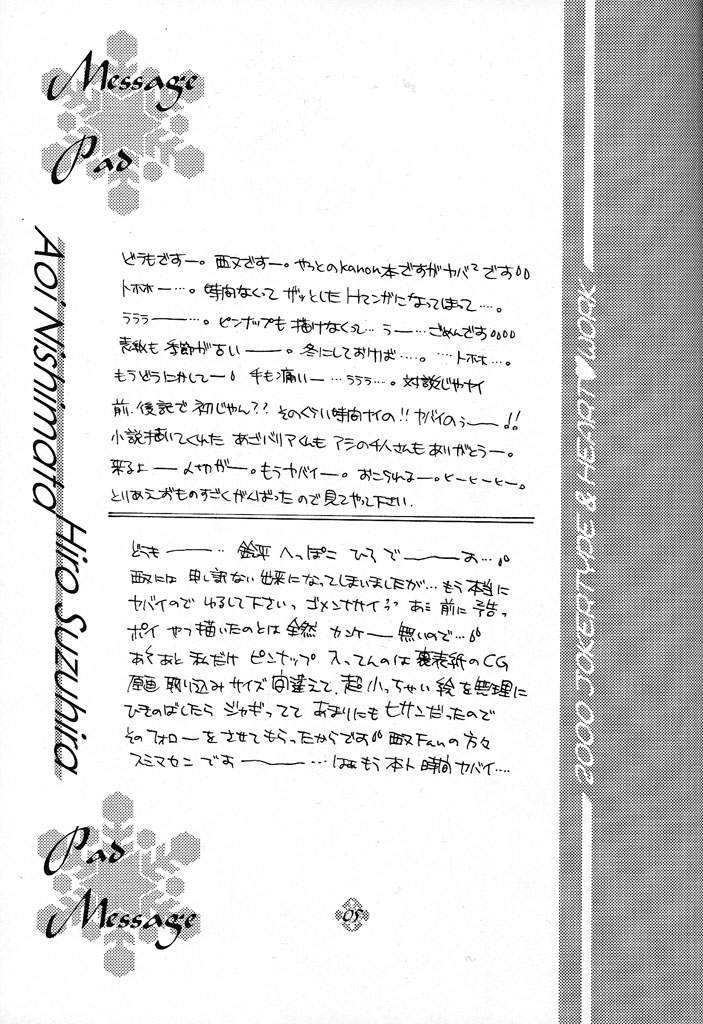 Message
Pad
Aoi Nishimata
どうもですー。西又ですー。やっとのkanon本ですがヤバ²です
トホホー…。時間なくって ザッとした Hマンガになってしまって…。
ラララ———…。ピンナップも 描けなくって… うー… ごめんです
表紙も 季節が古い———。冬にしておけば……。…トホホ…。
もうどうにかしてー 手も痛いー…ラララ…。対談じゃナイ
前.後記で 初じゃん?? そのぐらい時間ナイの!! ヤバイのぅー!!
小説描いてくれた あざバリアくんも アシの4人さんも ありがとうー。
来るよ —— 人切がー。もうヤバイー。おこられるー。ヒーヒーヒー。
とりあえおものすごくがんばった ので 見てやって下さい.
Hiro Suzuhira
どうも———‥ 鈴平 へっぽこ ひろ で———お…
西又には 申し訳ない 出来になってしまいましたが… もう 本当に
ヤバイので ゆるして下さいっ ゴメンナサイ?? あ 前に 予告っ
ポイ やつ 描いたのとは 全然 カンケー 無いので…
あくあと 私だけ ピンナップ 入ってんのは 裏表紙の CG
原画 取り込み サイズ 間違えて、超 小っちゃい 絵 を 無理に
ひきのばしたら ジャギってて あまりにも ヒサンだったので
そのフォロー をさせてもらったからです 西又Fanの 方々
スミマセン です——— …はぁ もう 本ト 時間 ヤバイ….
Pad
Message
05
2000 JOKERTYPE & HEART♥WORK